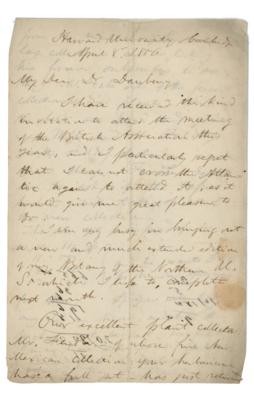 Harvard University, Cambridge
April 8, 1856
My Dear Dr. Daubeny
I have received the kind
invitation to attend the meeting
of the British Association this
year, and I particularly regret
that I can not cross the Atlan
tic again to attend it, as it
would give me great pleasure to
do
I am very busy in bringing out
a new and much extended edition
of my Botany of the Northern U.
S. which I hope to complete
next month.
Our excellent plant collector
Mr. of whose fine New
Mexican collection your herbarium
has a full set - has just returned